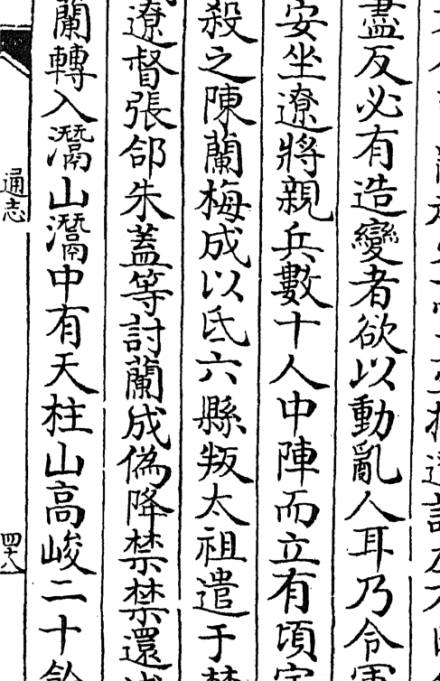 盡反必有造變者欲以動亂人耳乃令軍
安坐遼將親兵數十人中陣而立有頃定
殺之陳蘭梅成以氐六縣叛太祖遣于禁
遼督張郃朱蓋等討蘭成偽降禁禁還成
蘭轉入灊山灊中有天柱山高峻二十餘
通志
四十八